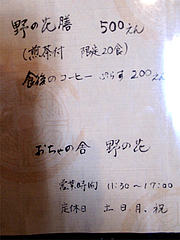 野の花膳 500えん
(煎茶付 限定20食)
食後のコーヒー ぷらす200えん
おちゃの舎 野の花
営業時間 11:30~17:00
定休日 土日月、祝